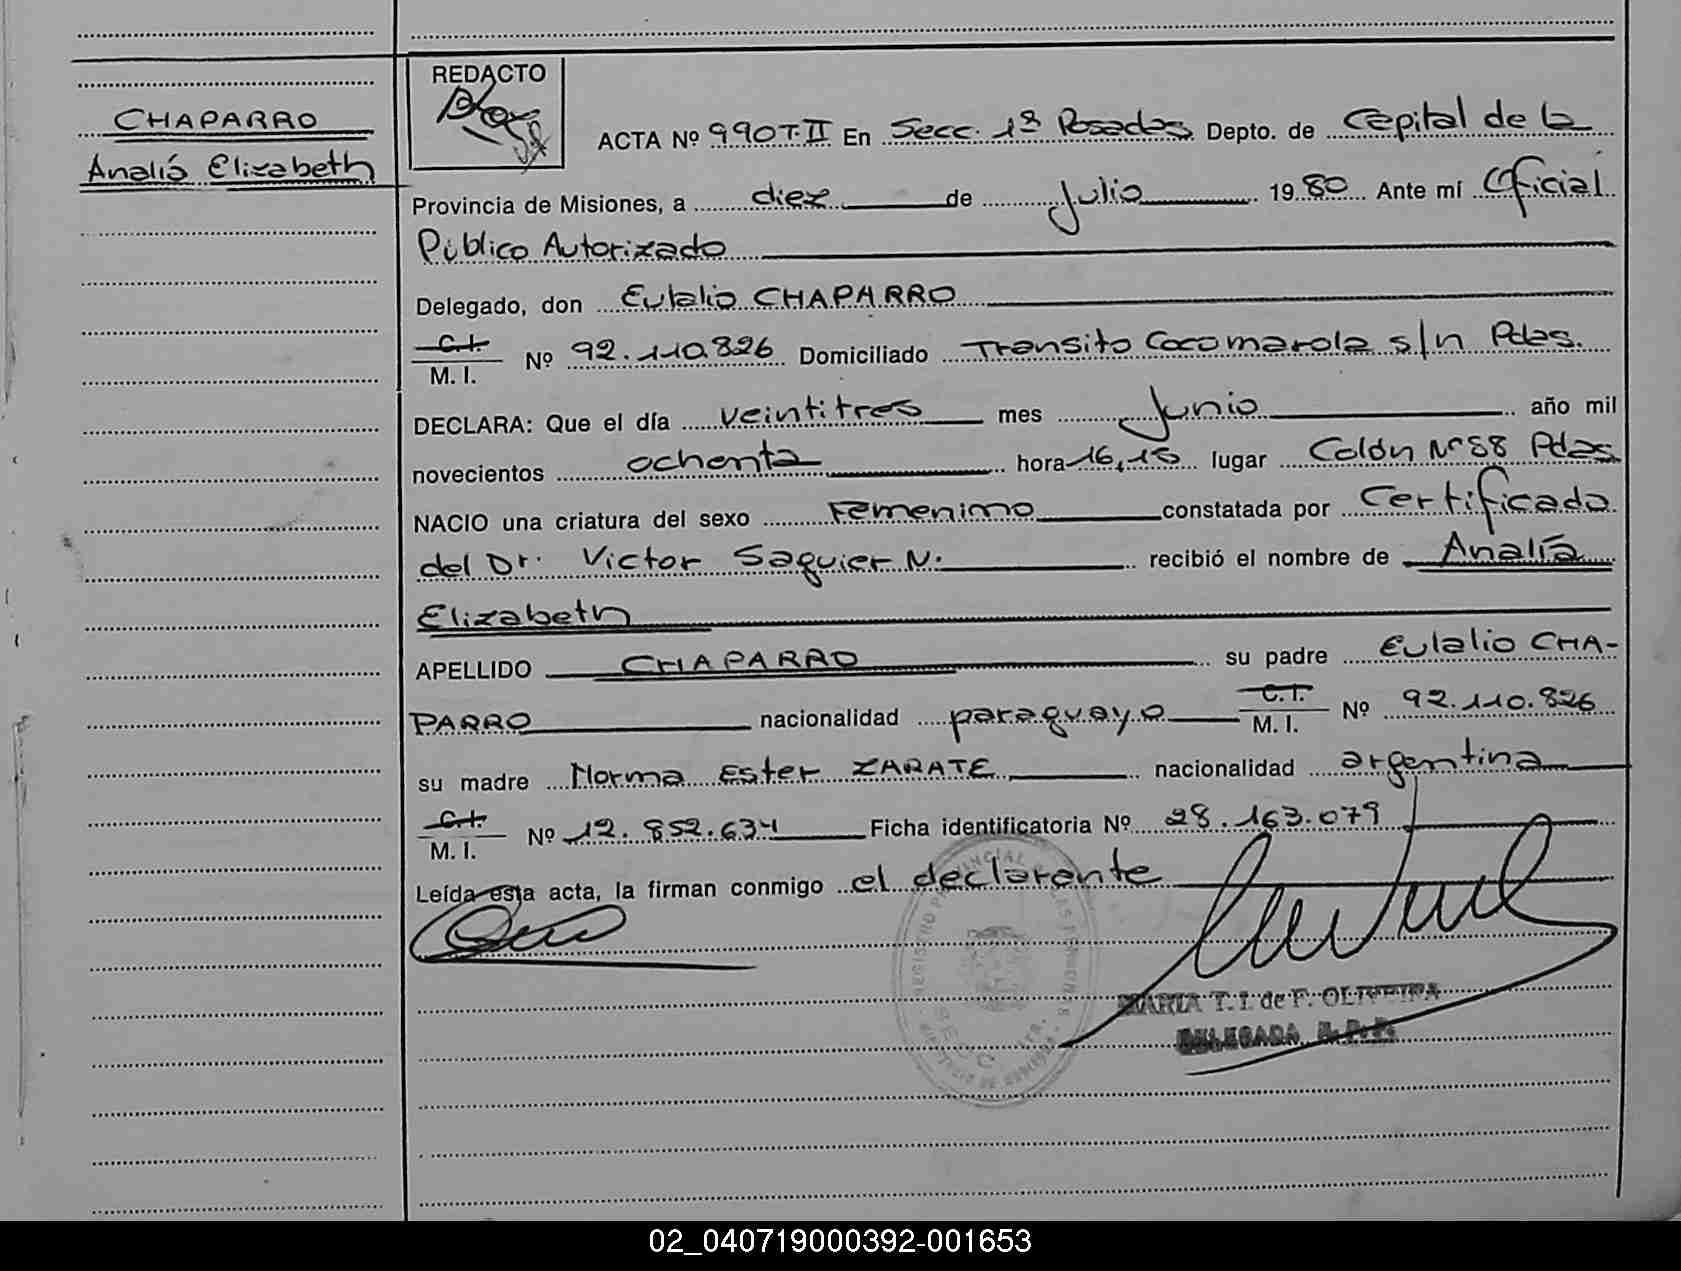 CHAPARRO
Analía Elizabeth
REDACTO
ACTA Nº 990 T. II En Secc. 1ª Posadas Depto. de Capital de la
Provincia de Misiones, a diez de Julio 1980 Ante mí Oficial
Público Autorizado
Delegado, don Eulalio CHAPARRO
C.I.
M. I. Nº 92.110.826 Domiciliado Transito Cocomarola s/n Pdas.
DECLARA: Que el día veintitres mes Junio año mil
novecientos ochenta hora 16,15 lugar Colón Nº 58 Pdas
NACIO una criatura del sexo Femenino constatada por Certificado
del Dr. Victor Saguier N. recibió el nombre de Analía
Elizabeth
APELLIDO CHAPARRO su padre Eulalio CHA-
PARRO nacionalidad paraguayo C.I. M. I. Nº 92.110.826
su madre Norma Ester ZARATE nacionalidad argentina
C.I.
M. I. Nº 12.852.634 Ficha identificatoria Nº 28.163.079
Leída esta acta, la firman conmigo el declarante
REGISTRO PROVINCIAL DE LAS PERSONAS
SECC. 1ra.
MARIA T. I. de F. OLIVEIRA
DELEGADA R. P. P.
02_040719000392-001653